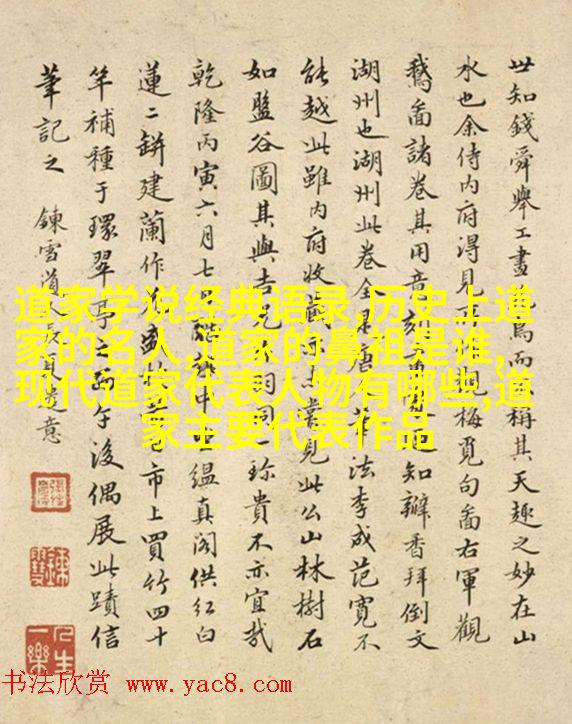 世知錢舜舉工畫鳥而稱其天趣之妙在山
水也余侍内府得見見梅覓句啚右軍觀
鵝啚諸卷其用意刻知辦香拜倒文
湖州也湖州此卷全唐法李成范寬不
能越此雖内府收見此公山林樹石
如盤谷圖其與吉光羽同珍貴不亦宜哉
乾隆丙寅六月七中縕真阁供红白
蓮二缾建蘭作盛市上買竹四十
竿補種于環翠亭之西午後偶展此蹟信
筆記之 鍊雪道長夏意
人生一樂
道家学说经典语录,历史上道
家的名人,道家的鼻祖是谁,
现代道家代表人物有哪些,道
家主要代表作品
书法欣赏 www.yac8.com